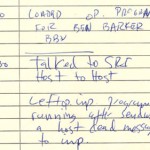 LOADED OP. PROGRAM
FOR BEN BARKER
BBV
30 Talked to SRI
Host to Host
Left op. imp program
running after sending
a host dead messag
to imp.